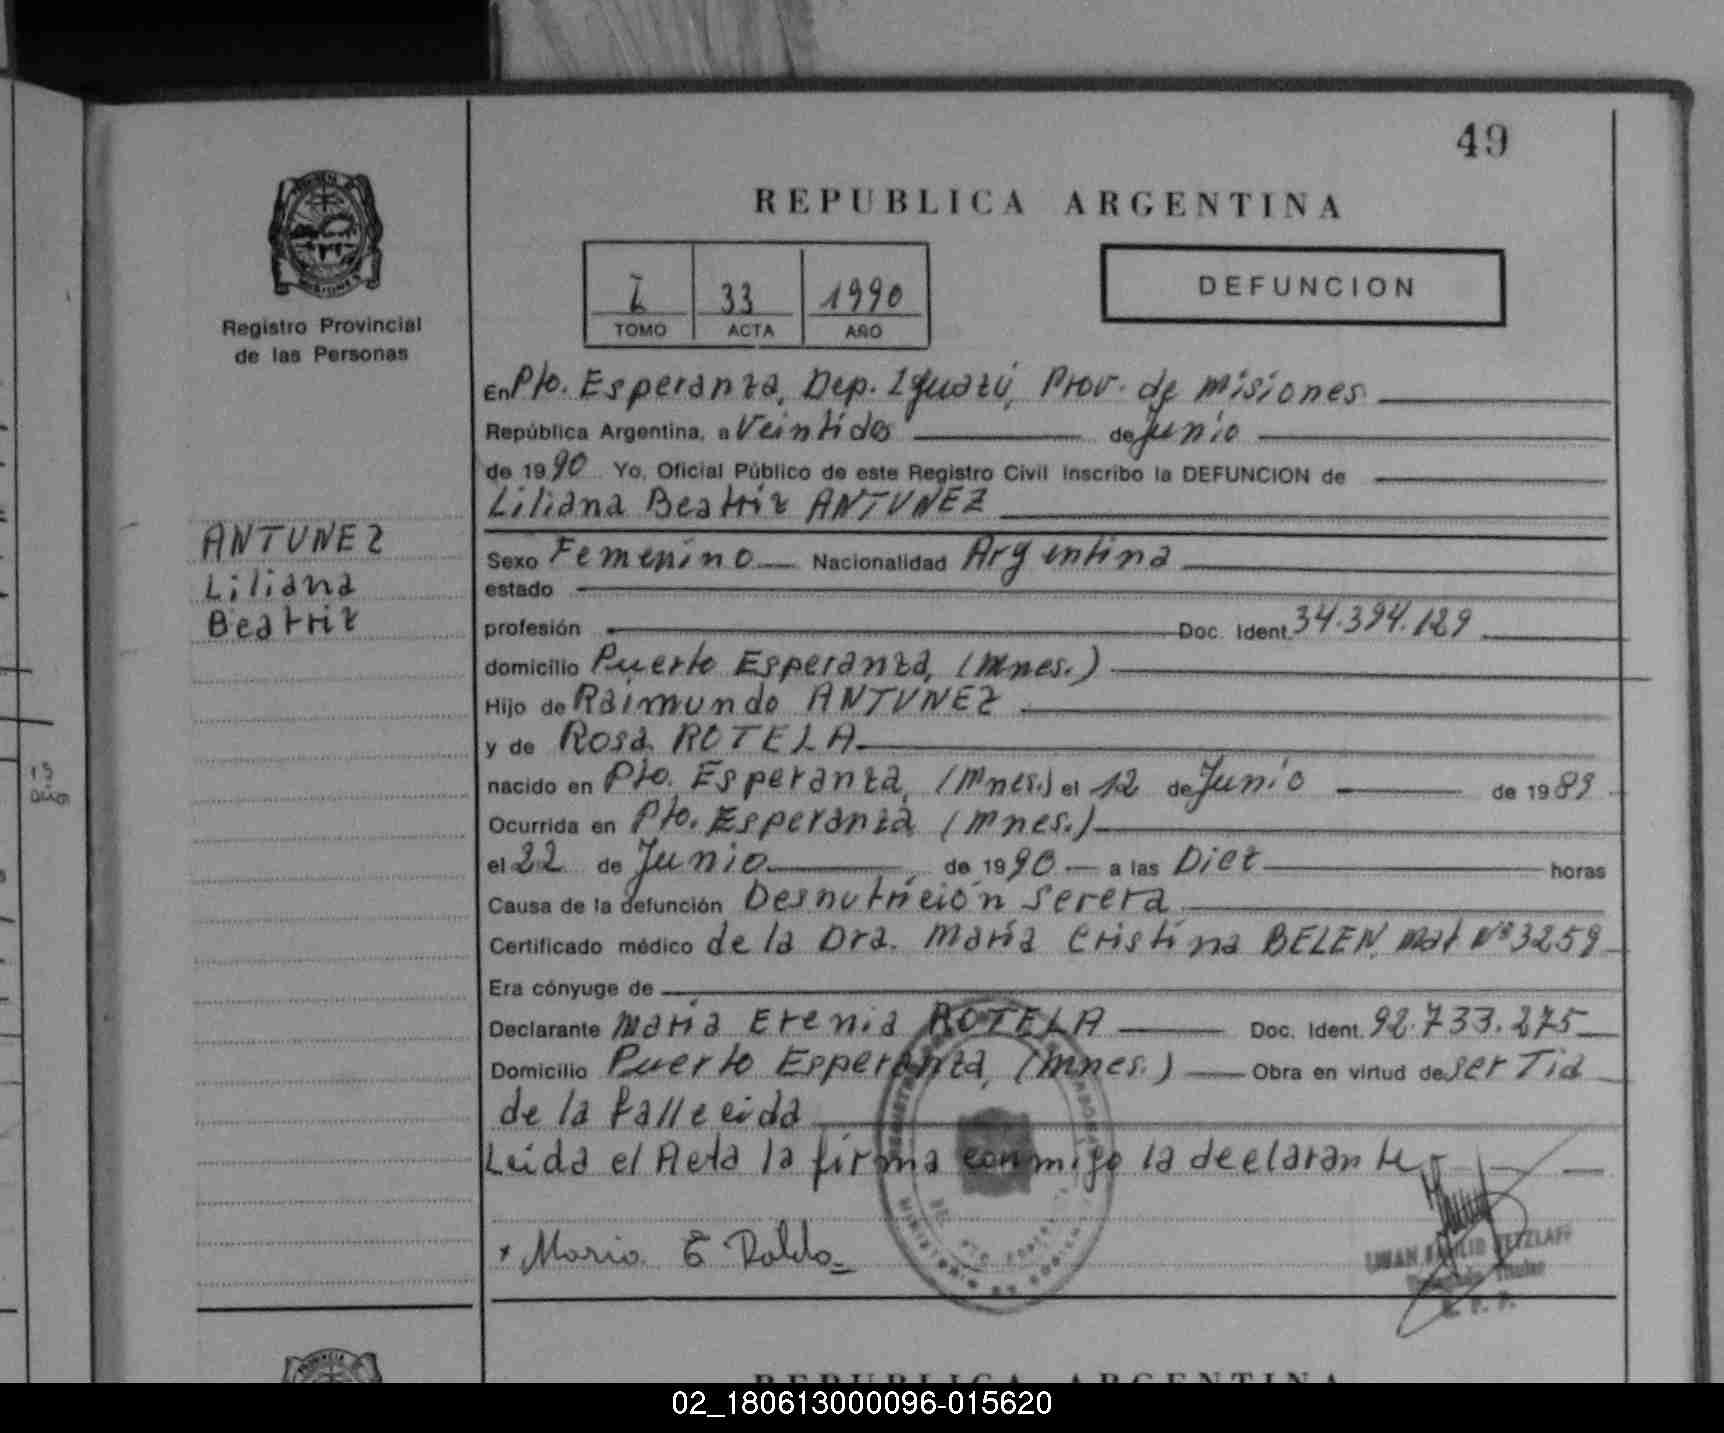 49
REPUBLICA ARGENTINA
Registro Provincial
de las Personas
I 33 1990
TOMO ACTA AÑO
DEFUNCION
ANTUNEZ
Liliana
Beatriz
En Pto. Esperanza, Dep. Iguazú, Prov. de Misiones
República Argentina, a Veintidos de Junio
de 1990 Yo, Oficial Público de este Registro Civil inscribo la DEFUNCION de
Liliana Beatriz ANTUNEZ
Sexo Femenino Nacionalidad Argentina
estado
profesión Doc. Ident. 34.394.129
domicilio Puerto Esperanza, (Mnes.)
Hijo de Raimundo ANTUNEZ
y de Rosa ROTELA
nacido en Pto. Esperanza, (Mnes.) el 12 de Junio de 1989
Ocurrida en Pto. Esperanza (Mnes.)
el 22 de Junio de 1990 a las Diez horas
Causa de la defunción Desnutrición Serera
Certificado médico de la Dra. María Cristina BELEN, Mat. Nº 3259
Era cónyuge de
Declarante María Erenia ROTELA Doc. Ident. 92.733.275
Domicilio Puerto Esperanza, (Mnes.) Obra en virtud de ser Tia
de la fallecida
Leida el Acta la firma conmigo la declarante
x Maria E
REPUBLICA ARGENTINA
02_180613000096-015620